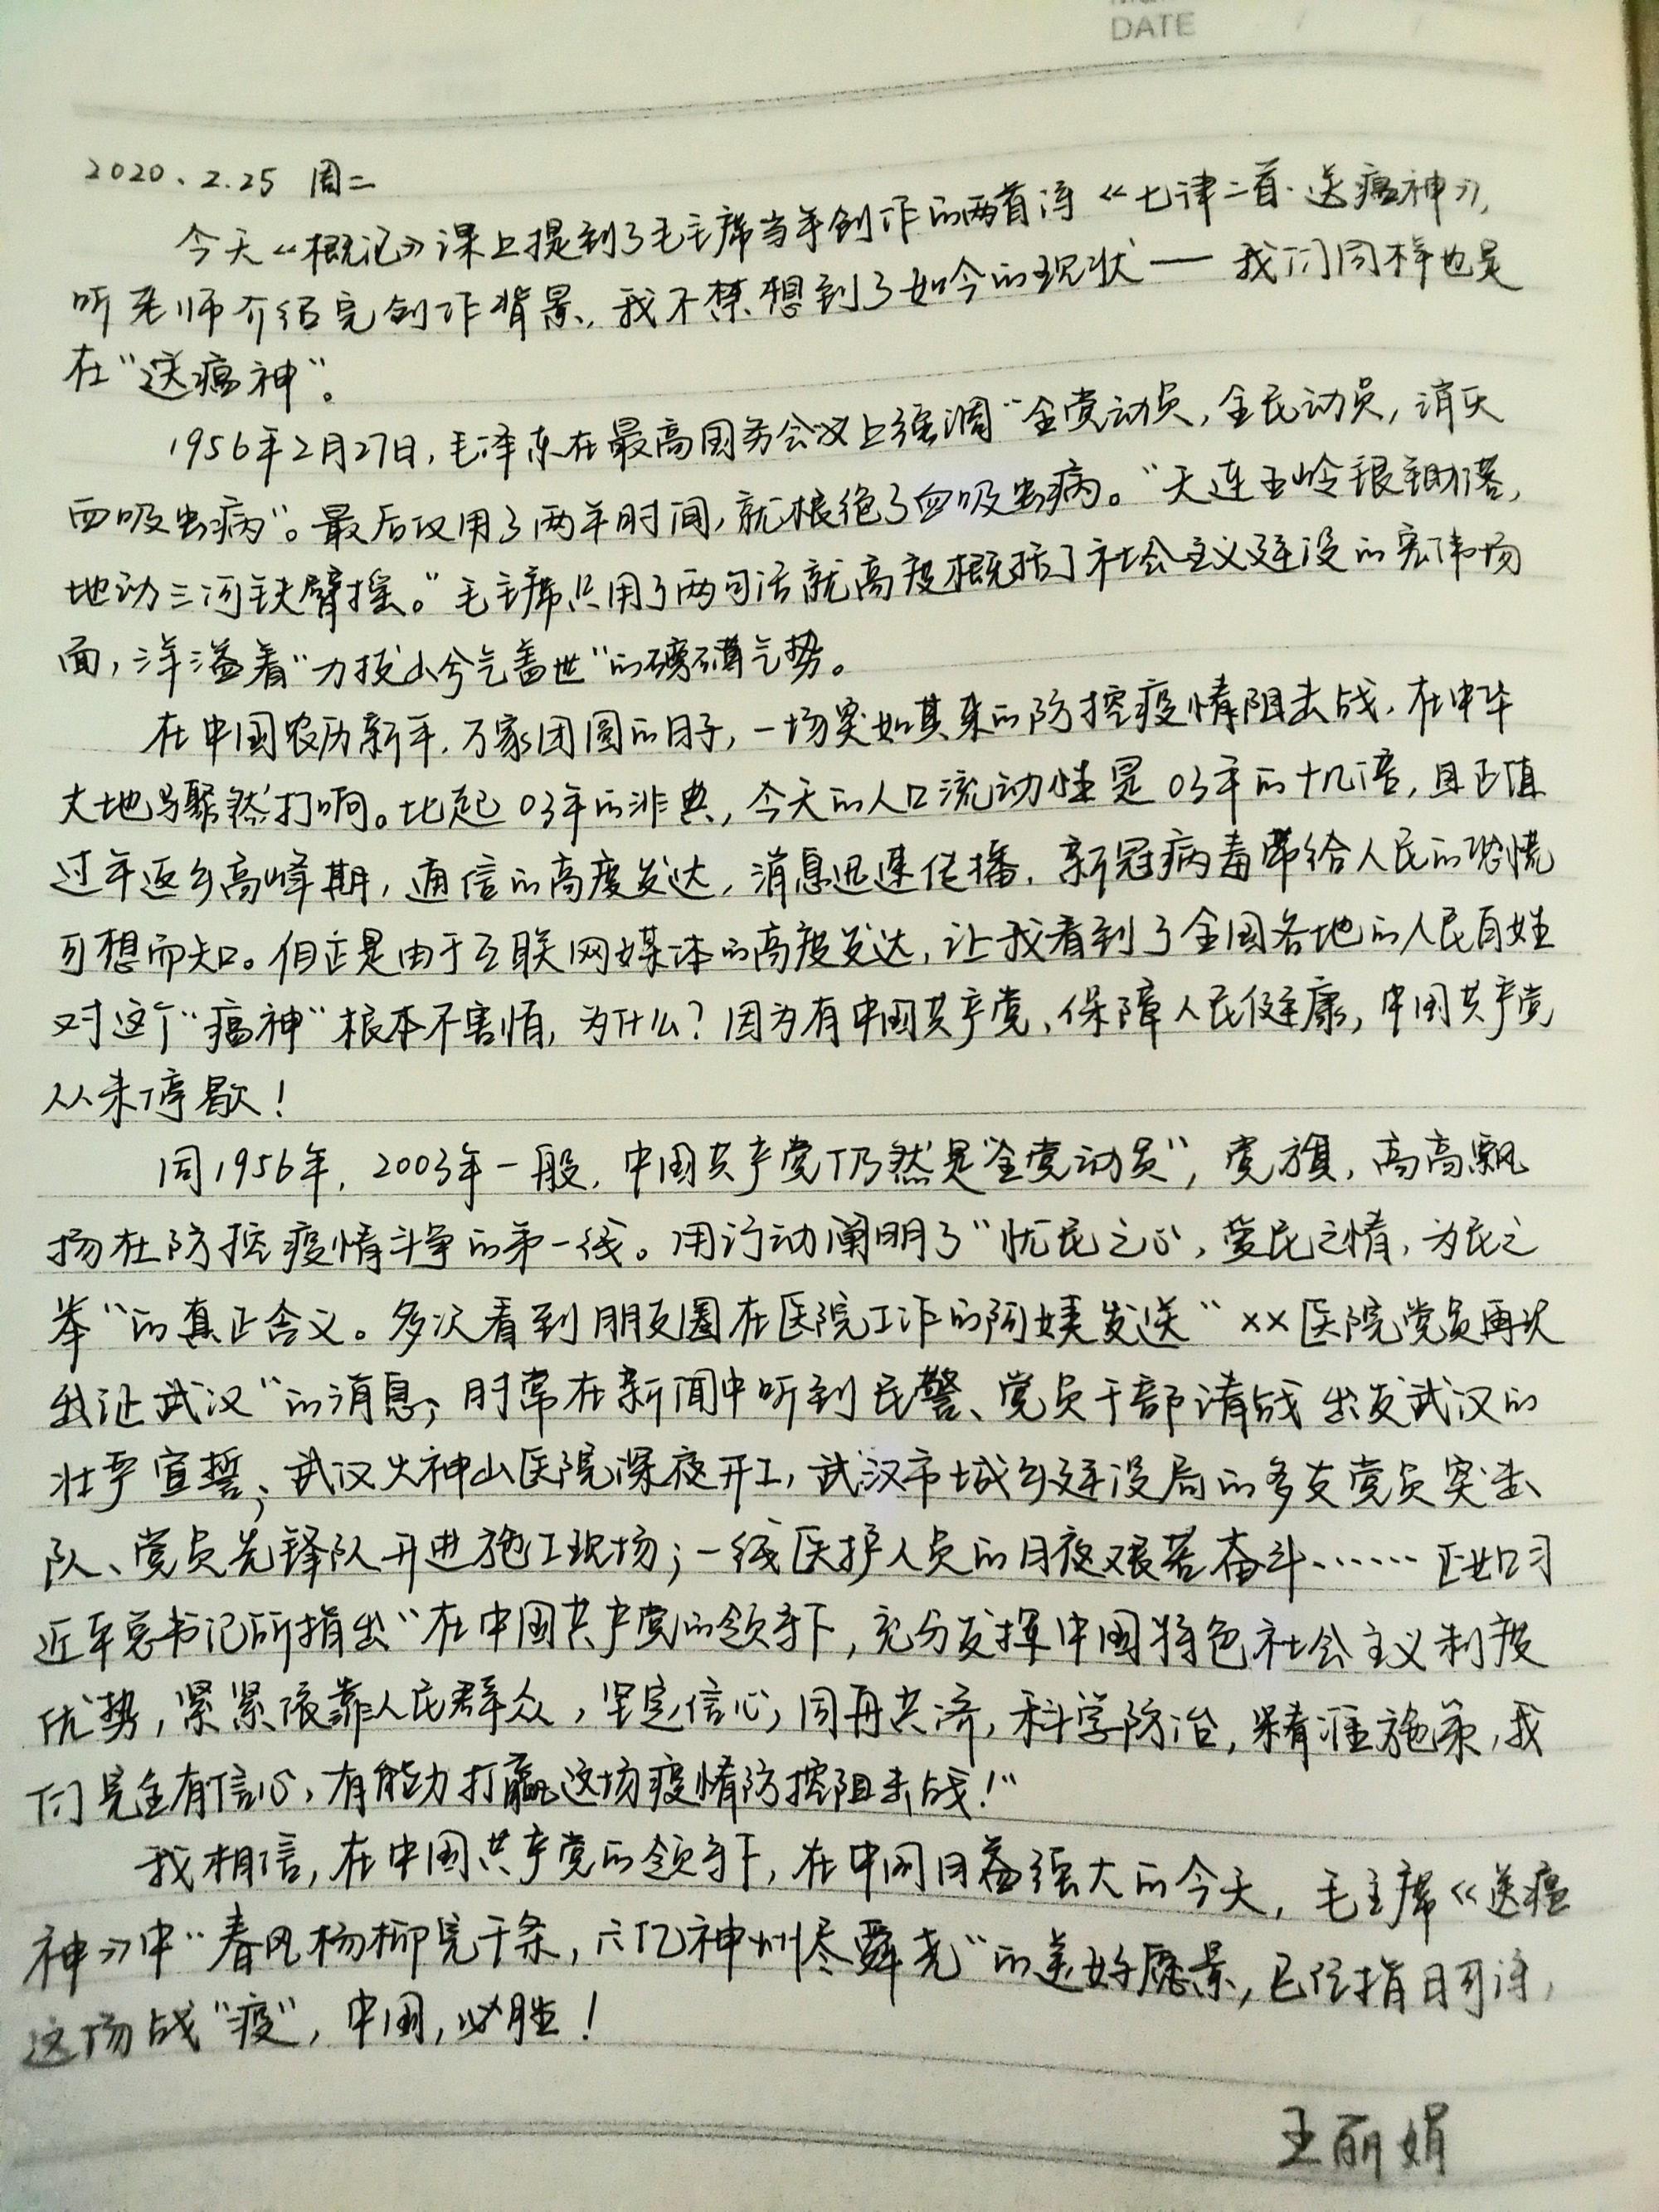 DATE
2020、2.25 周二
今天《概论》课上提到了毛主席当年创作的两首诗《七律二首·送瘟神》,
听老师介绍完创作背景,我不禁想到了如今的现状——我们同样也是
在“送瘟神”。
1956年2月27日,毛泽东在最高国务会议上强调“全党动员,全民动员,消灭
血吸虫病”。最后仅用了两年时间,就根绝了血吸虫病。“天连五岭银锄落,
地动三河铁臂摇。”毛主席只用了两句话就高度概括了社会主义建设的宏伟场
面,洋溢着“力拔山兮气盖世”的磅礴气势。
在中国农历新年,万家团圆的日子,一场突如其来的防控疫情阻击战,在中华
大地骤然打响。比起03年的非典,今天的人口流动性是03年的十几倍,且正值
过年返乡高峰期,通信的高度发达,消息迅速传播,新冠病毒带给人民的恐慌
可想而知。但正是由于互联网媒体的高度发达,让我看到了全国各地的人民百姓
对这个“瘟神”根本不害怕,为什么?因为有中国共产党,保障人民健康,中国共产党
从未停歇!
同1956年,2003年一般,中国共产党仍然是“全党动员”,党旗,高高飘
扬在防控疫情斗争的第一线。用行动阐明了“忧民之心,爱民之情,为民之
举”的真正含义。多次看到朋友圈在医院工作的阿姨发送“××医院党员再次
出征武汉”的消息;时常在新闻中听到民警、党员干部请战出发武汉的
壮严宣誓;武汉火神山医院深夜开工,武汉市城乡建设局的多支党员突击
队、党员先锋队开进施工现场;一线医护人员的日夜艰苦奋斗……正如习
近平总书记所指出“在中国共产党的领导下,充分发挥中国特色社会主义制度
优势,紧紧依靠人民群众,坚定信心,同舟共济,科学防治,精准施策,我
们完全有信心,有能力打赢这场疫情防控阻击战!”
我相信,在中国共产党的领导下,在中国日益强大的今天,毛主席《送瘟
神》中“春风杨柳完千条,六亿神州尽舜尧”的美好愿景,已经指日可待,
这场战“疫”,中国,必胜!
王丽娟